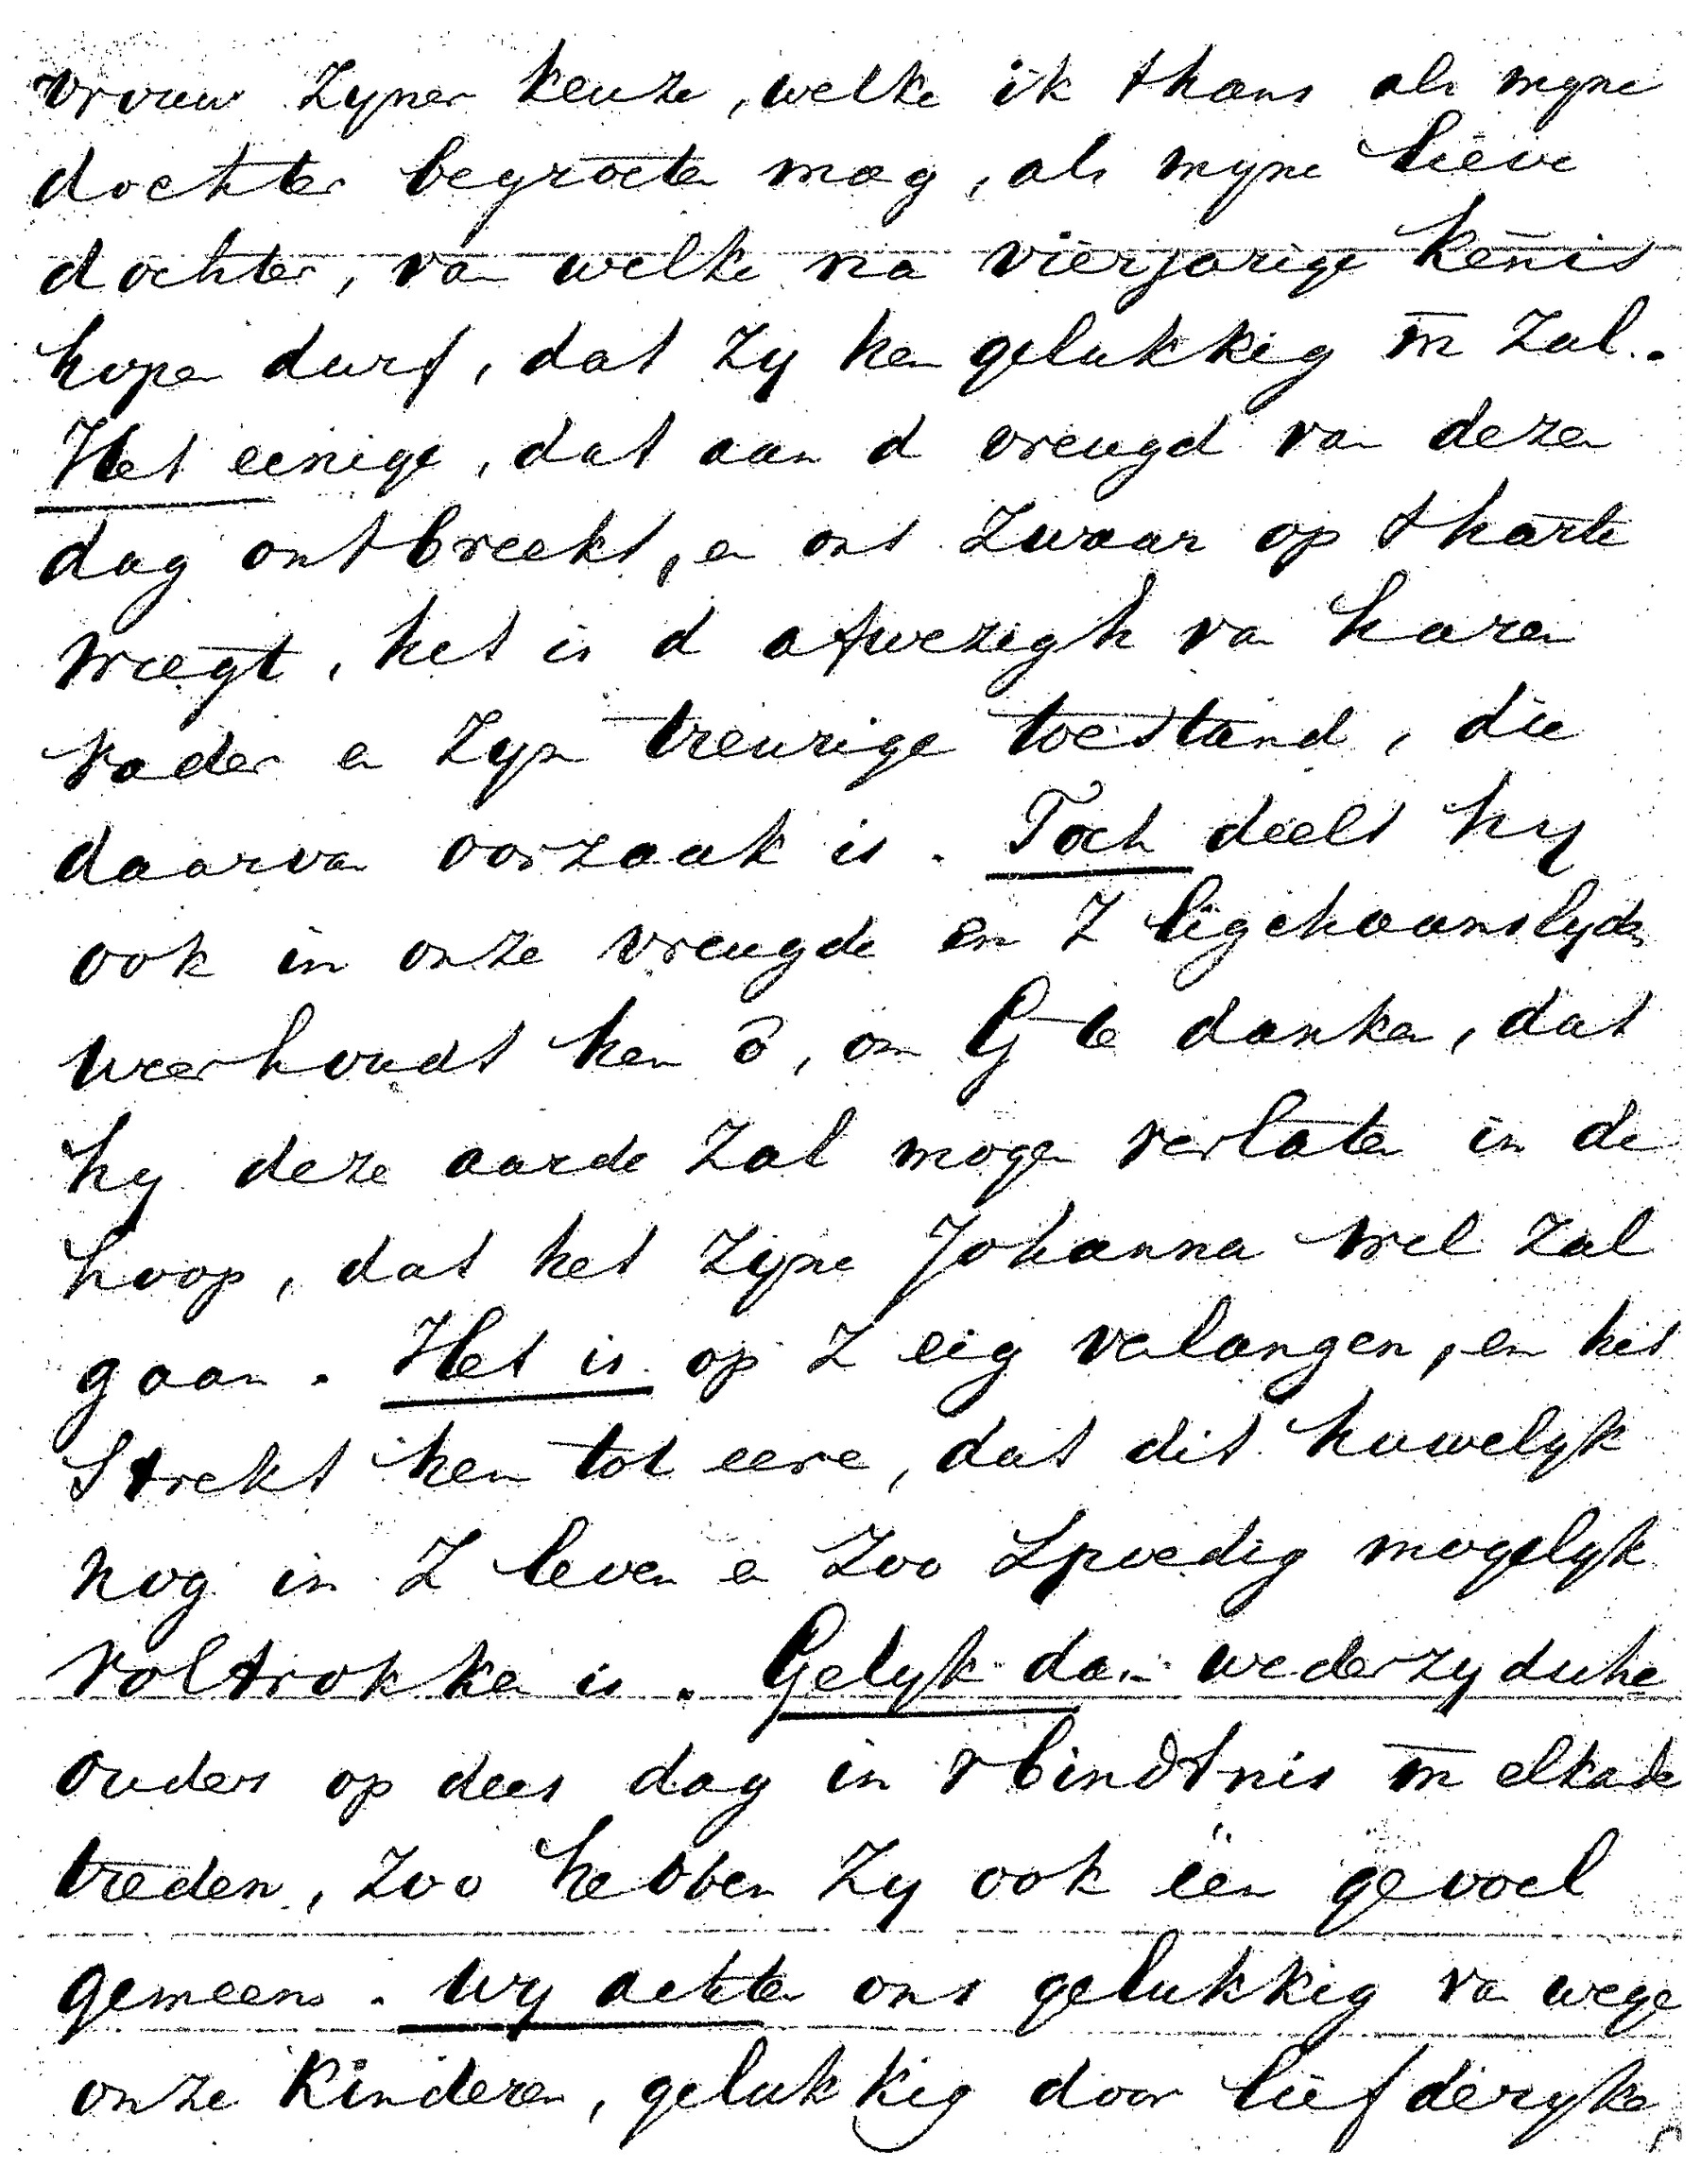 vrouw zyner keuze, welke ik thans als myne
dochter begroeten mag, als myne lieve
dochter, van welke na vierjarige kennis
hopen durf, dat zy hem gelukkig m̄ zal.
Het eenige, dat aan d vreugd van dezen
dag ontbreekt, en ons zwaar op t harte
weegt, het is d afwezigh van haren
vader en zyn treurige toestand, die
daarvan oorzaak is. Toch deelt hy
ook in onze vreugde en Z ligchaamslyden
weerhoudt hem ō, om G te danken, dat
hy deze aarde zal mogen verlaten in de
hoop, dat het zyne Johanna wel zal
gaan. Het is op Z eig verlangen, en het
strekt hem tot eere, dat dit huwelyk
nog in Z leven en zoo spoedig mogelyk
voltrokken is. Gelyk dan wederzydsche
ouders op dees dag in vbindtnis m̄ elkade
treden, zoo hebben zy ook één gevoel
gemeen. Wy achten ons gelukkig van wege
onze kinderen, gelukkig door liefderyke